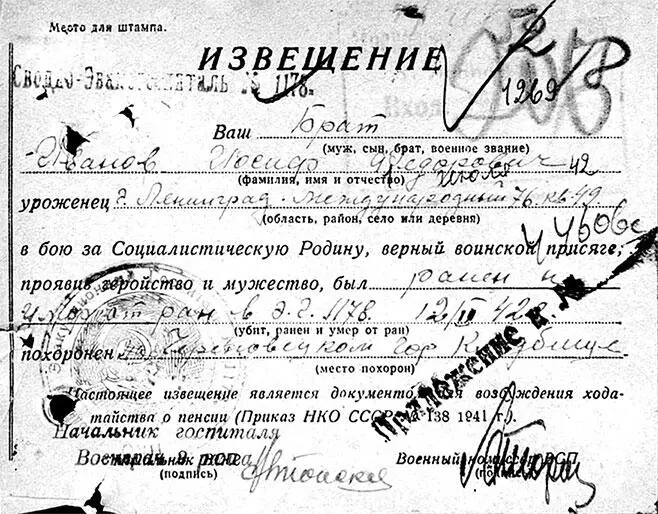 Место для штампа.
ИЗВЕЩЕНИЕ
Сводно-Эвакогоспиталь № 1178.
1269
Ваш Брат
(муж, сын, брат, военное звание)
Иванов Иосиф Федорович
(фамилия, имя и отчество) 42
уроженец г. Ленинград. Международный 76 кв 49
(область, район, село или деревня)
в бою за Социалистическую Родину, верный воинской присяге,
проявив геройство и мужество, был ранен и
умер от ран в Э.Г. 1178. 12/III 42 г
(убит, ранен и умер от ран)
похоронен на Череповецком гор кладбище
(место похорон)
Настоящее извещение является документом для возбуждения хода-
тайства о пенсии (Приказ НКО СССР № 138 1941 г.).
Приложение к №
Начальник госпиталя
Военврач 2 ранга
Военный комиссар
(подпись) (подпись)